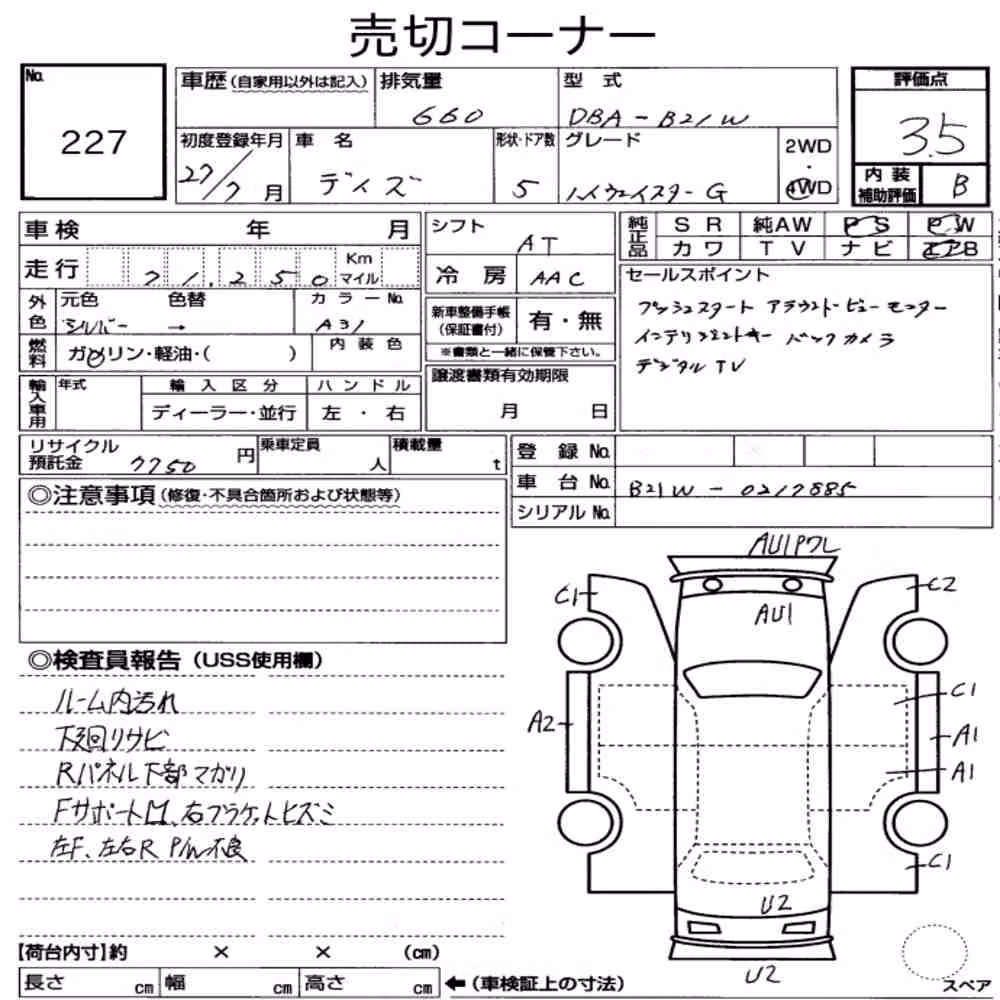 売切コーナー
No.
227
車歴(自家用以外は記入)
排気量
660
型 式
DBA-B21W
評価点
3.5
初度登録年月
27/7月
車 名
デイズ
形状・ドア数
5
グレード
ハイウェイスターG
2WD
・
4WD
内装
補助評価
B
車検 年 月
シフト
AT
純正品
SR 純AW PS PW
カワ TV ナビ エアB
走行 71,250 Km マイル
冷房
AAC
セールスポイント
プッシュスタート アラウンドビューモニター
インテリジェントキー バックカメラ
デジタルTV
外色
元色 色替
シルバー →
カラーNo.
A31
新車整備手帳
(保証書付)
有・無
※書類と一緒に保管下さい。
燃料
ガソリン・軽油・( )
内装色
輸入車用
年式
輸入区分
ハンドル
ディーラー・並行
左・右
譲渡書類有効期限
月 日
リサイクル
預託金
7750円
乗車定員
人
積載量
t
登録No.
車台No. B21W-0217885
シリアルNo.
◎注意事項(修復・不具合箇所および状態等)
AU1Pワレ
C1
C2
AU1
◎検査員報告(USS使用欄)
ルーム内汚れ
下廻リサビ
Rパネル下部マガリ
FサポートM、右ブラケットヒズミ
左F、左右R P/W不良
A2
C1
A1
A1
C1
U2
U2
【荷台内寸】約 × × (cm)
長さ cm 幅 cm 高さ cm ←(車検証上の寸法)
スペア